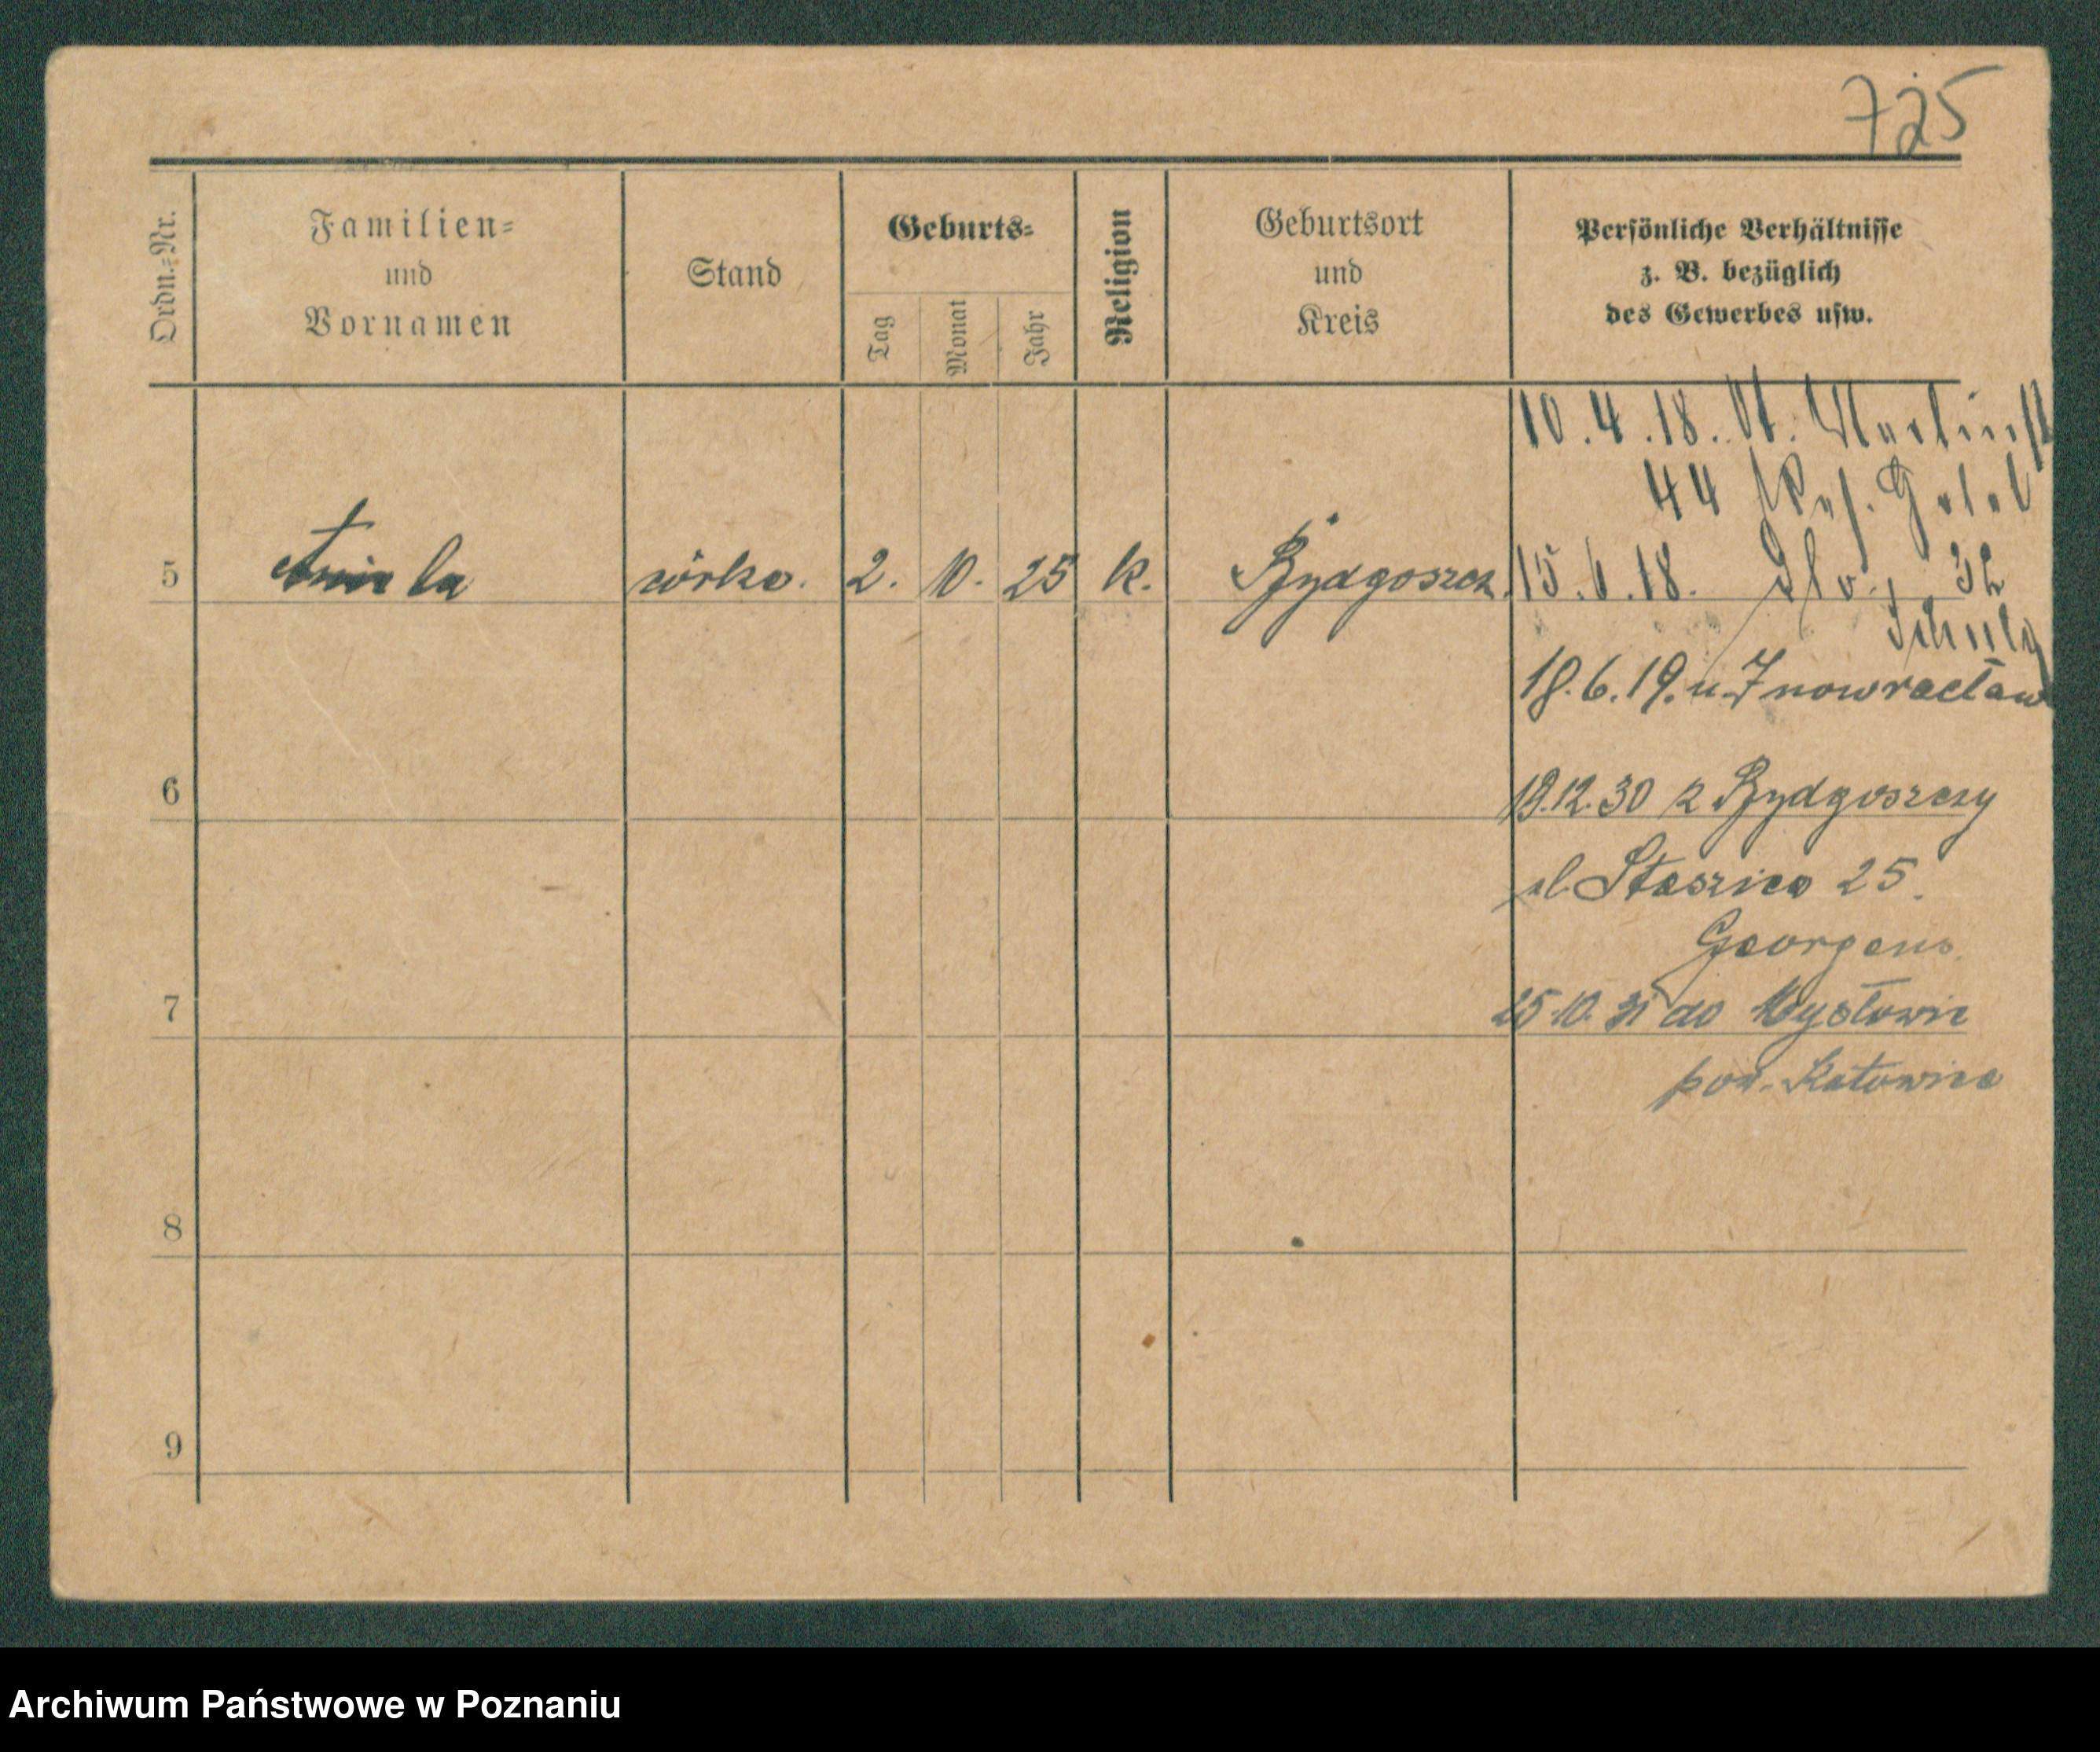 725
Ordn.-Nr.
Familien-
und
Vornamen
Stand
Geburts-
Tag
Monat
Jahr
Religion
Geburtsort
und
Kreis
Persönliche Verhältnisse
z. B. bezüglich
des Gewerbes usw.
10.4.18. St. Martinst
44
5 Aniela córka. 2. 10. 25 k. Bydgoszcz.
15.6.18. 32
Schulz
18.6.19. n. Inowrocław
6
19.12.30 z Bydgoszczy
ul. Staszica 25.
Georgens
7
25.10.31 do Mysłowic
pow. Katowice
8
9
Archiwum Państwowe w Poznaniu